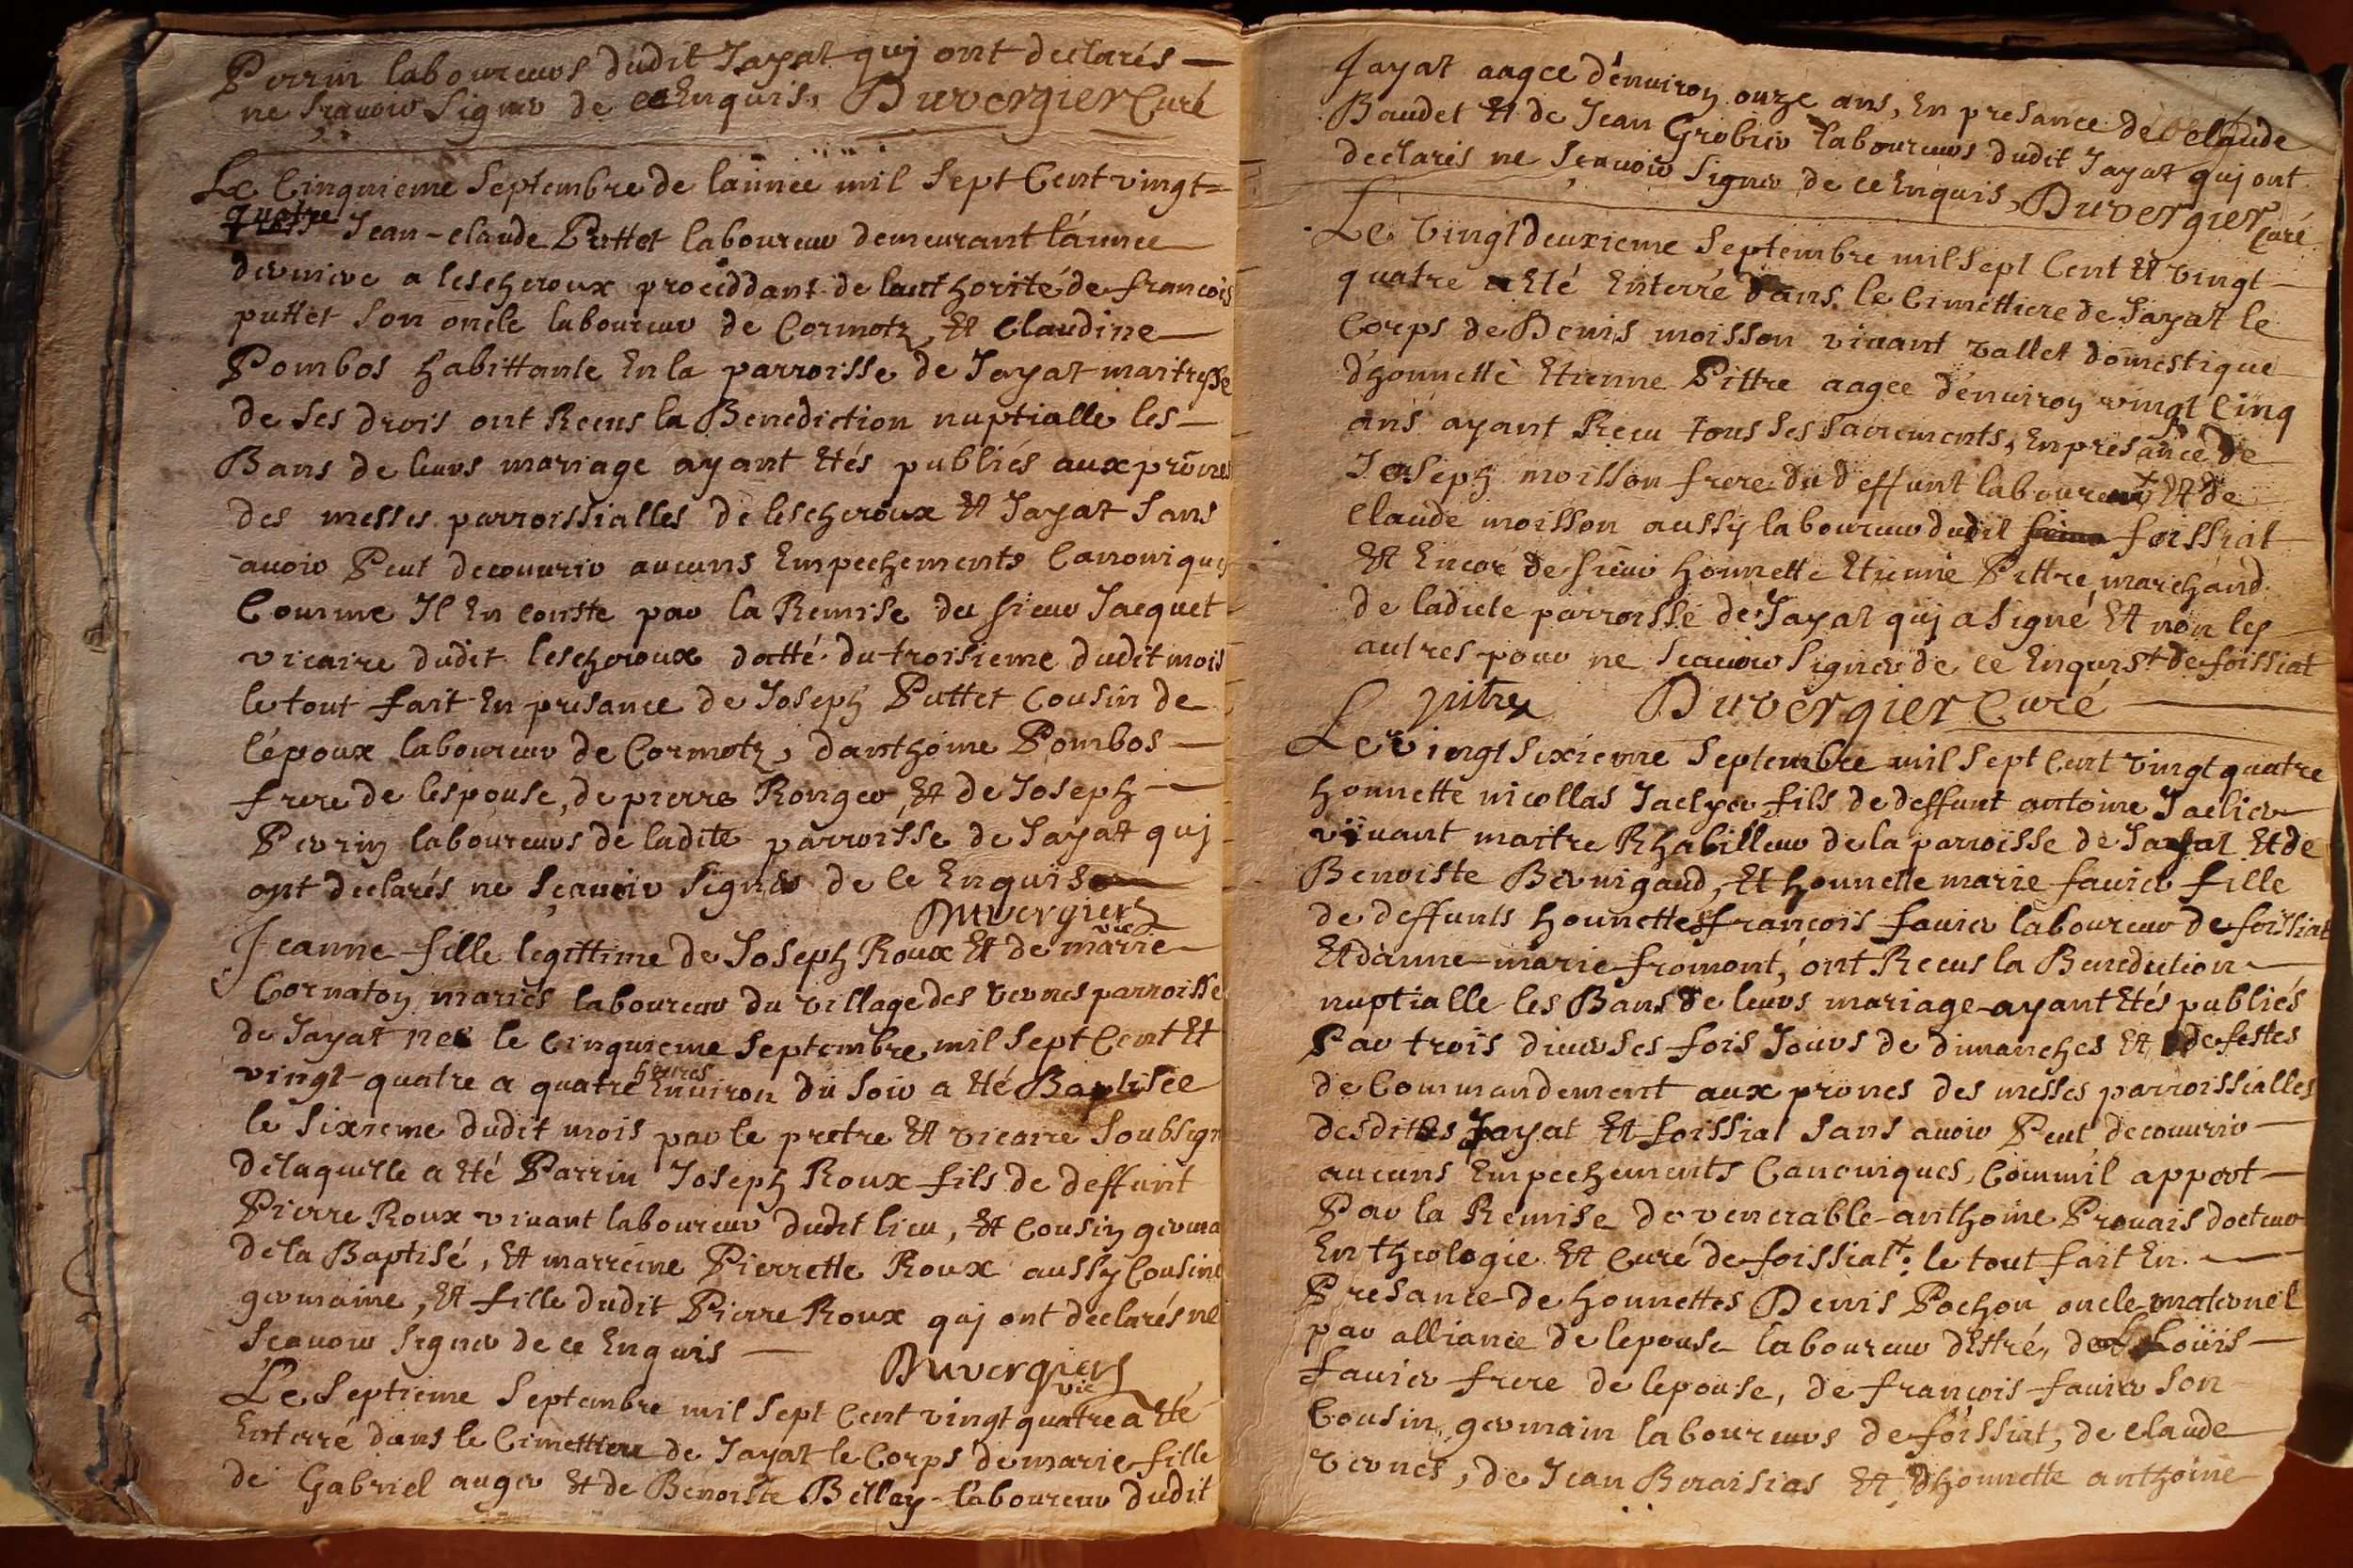 Perrin laboureurs dudit Jayat quj ont declarés
ne sçauoir signer de ce Enquis. Duvergier Curé
Le Cinquieme Septembre de lannée mil Sept Cent vingt=
quatre Jean-claude Puttet laboureur demeurant lánnée
derniere a lescheroux procéddant de lauthorité de francois
puttet son oncle laboureur de Cormotz, Et Claudine
Pombos habittante En la parroisse de Jayat maitresse
de ses drois ont Receus la Benediction nuptialle les
Bans de leurs mariage ayant Etés publiés aux prônes
des messes parroissialles de lescheroux Et Jayat sans
auoir Peut decouurir aucuns Empechements Canoniques
Comme Il En conste par la Remise du sieur Jacquet
vicaire dudit lescheroux datté du troisieme dudit mois
le tout fait En presance de Joseph Puttet Cousin de
l'époux laboureur de Cormotz, danthoine Pombos
frere de lespouse, de pierre Ronger Et de Joseph
Perrin laboureurs de ladite parroisse de Jayat quj
ont declarés ne sçauoir signer de ce Enquis
Duvergier vic
Jeanne fille legittime de Joseph Roux Et de marie
Cornaton mariés laboureur du village des vernes parroisse
de Jayat née le Cinquieme Septembre mil Sept Cent Et
vingt-quatre a quatre heures Enuiron du soir a Eté Baptisée
le sixieme dudit mois par le pretre Et vicaire soubsign
de laquelle a Eté Parrin Joseph Roux fils de deffunt
Pierre Roux viuant laboureur dudit lieu, Et Cousin germa
de la Baptisé, Et marreine Pierrette Roux aussy Cousine
germaine, Et fille dudit Pierre Roux quj ont declarés ne
sçauoir signer de ce Enquis
Duvergier vic
Le Septieme Septembre mil Sept Cent vingt quatre a Eté
Enterré dans le Cimettiere de Jayat le Corps de marie fille
de Gabriel auger Et de Benoiste Billay laboureur dudit
Jayat aagée d'énuiron onze ans, En presance de claude
Baudet Et de Jean Grobier laboureurs dudit Jayat quj ont
declarés ne sçauoir signer de ce Enquis, Duvergier Curé
Le vingtdeuxieme Septembre mil Sept Cent Et vingt
quatre a Eté Enterré dans le Cimettiere de Jayat le
Corps de Denis moisson viuant vallet domestique
d'honnette Etienne Pittre aagee d'énuiron vingt Cinq
ans ayant Receu tous ses sacrements, En presance de
Joseph moisson frere du deffunt laboureur Et de
Claude moisson aussy laboureur dudit foissiat
Et Encor de sieur honnette Etienne Pittre marchand
de ladicte parroisse de Jayat quj a signé Et non les
autres pour ne sçauoir signer de ce Enquis + de foissiat
pitre Duvergier Curé
Le vingt sixieme Septembre mil Sept Cent vingt quatre
honnette nicollas Jaelyer fils de deffunt antoine Jaelier
viuant maitre Rhabilleur de la parroisse de Jayat Et de
Benoiste Bernigaud, Et honnette marie fauier fille
de deffunts honnettes françois fauier laboureur de foissiat
Et dánne-marie fromont, ont Receus la Benediction
nuptialle les Bans de leurs mariage ayant Etés publiés
Par trois diuerses fois Jours de dimanches Et de festes
de Commandement aux prones des messes parroissialles
desdites Jayat Et foissiat sans auoir Peut decouurir
aucuns Empechements Canoniques, Comm'il appert
Par la Remise de venerable anthoine Prouais docteur
En theologie Et Curé de foissiat: le tout fait En
Presance de honnettes Denis Pochon oncle maternel
par alliance de lepouse laboureur dEtré, de Loüis
fauier frere de lepouse, de françois fauier son
Cousin germain laboureurs de foissiat, de claude
vernes, de Jean Beraisias Et d'honnette anthoine